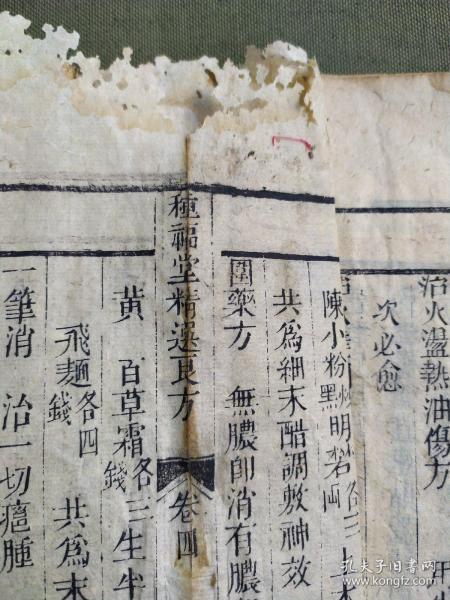 治火盪熱油傷方
次必愈
陳小粉炒黑 明礬
共為細末醋調敷神效
圍藥方 無膿即消有膿
種福堂精選良方 卷四
黃 百草霜各三錢 生半
飛麵各四錢 共為末
一筆消 治一切瘟腫
孔夫子旧书网